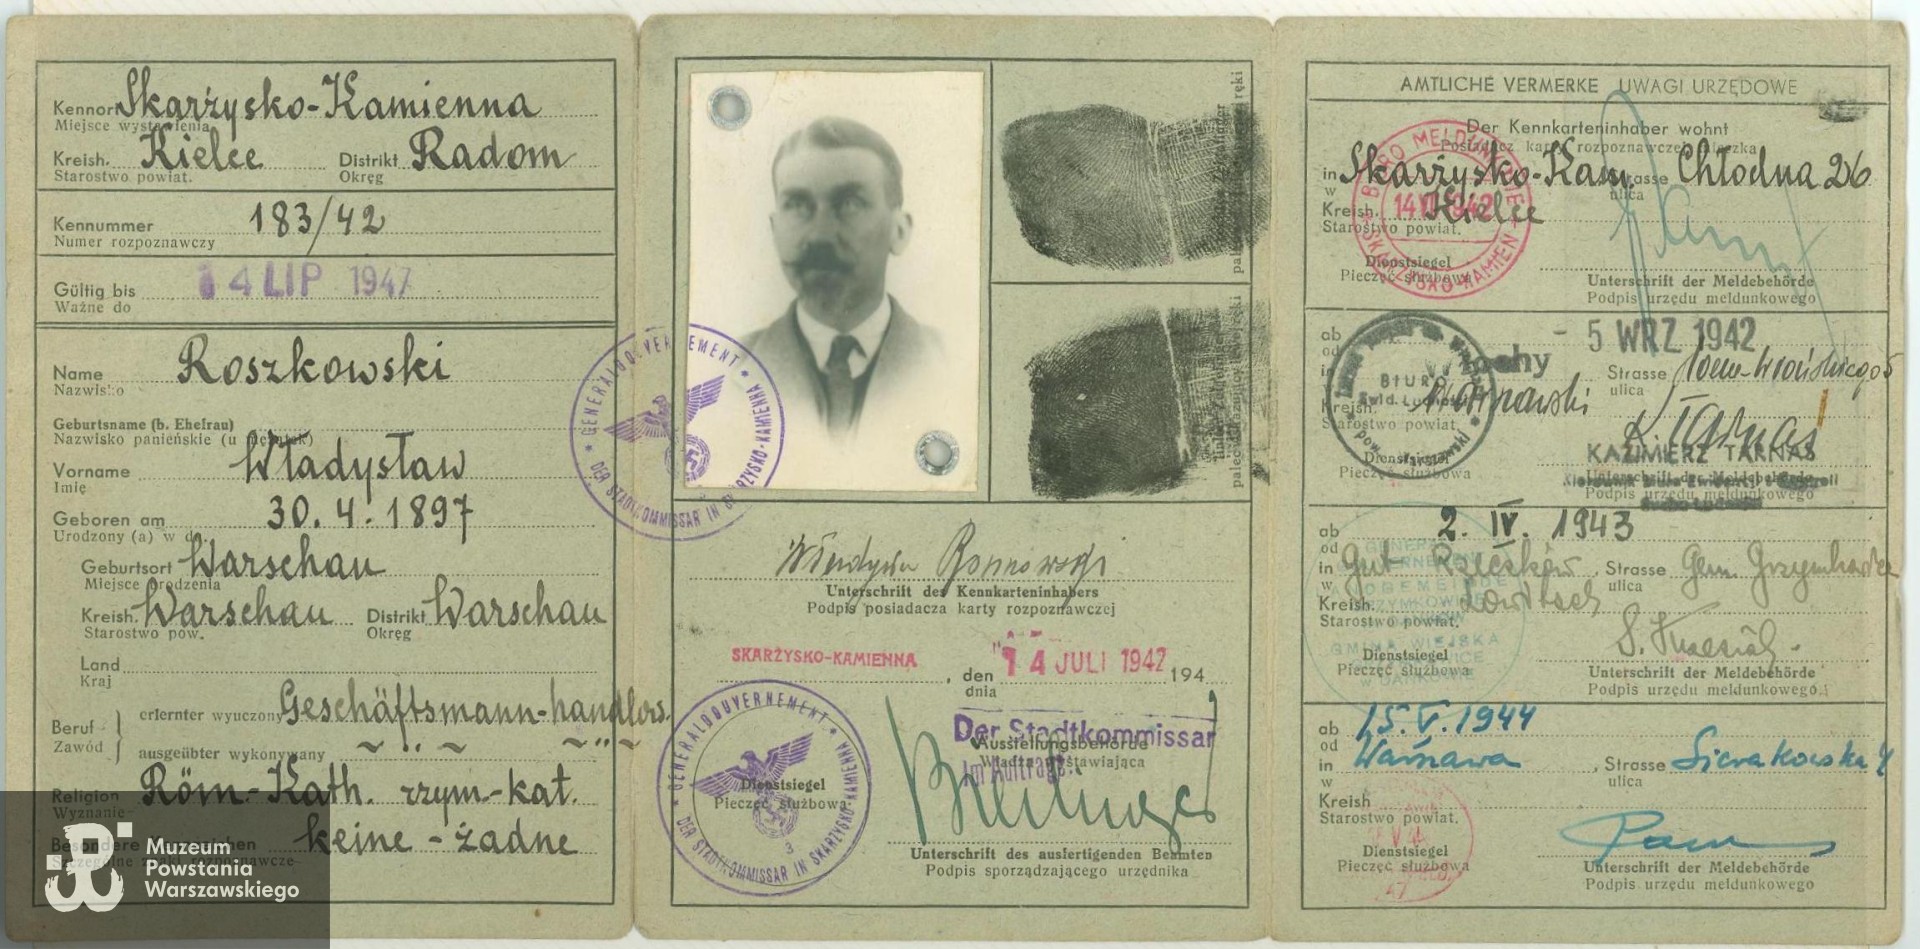 Kennort Skarżysko-Kamienna
Miejsce wystawienia
Kreish. Kielce Distrikt Radom
Starostwo powiat. Okręg
Kennummer 183/42
Numer rozpoznawczy
Gültig bis 14 LIP 1947
Ważne do
Name Roszkowski
Nazwisko
Geburtsname (b. Ehefrau)
Nazwisko panieńskie (u mężatek)
Vorname Władysław
Imię
Geboren am 30. 4. 1897
Urodzony (a) w d.
Geburtsort Warschau
Miejsce urodzenia
Kreish. Warschau Distrikt Warschau
Starostwo pow. Okręg
Land
Kraj
Beruf erlernter wyuczony Geschäftsmann-handlow.
Zawód ausgeübter wykonywany ~ " ~ ~ " ~
Religion Röm.-Kath. rzym-kat.
Wyznanie
Besondere Kennzeichen keine - żadne
Szczególne znaki rozpoznawcze
Muzeum
Powstania
Warszawskiego
GENERALGOUVERNEMENT
DER STADTKOMMISSAR IN SKARZYSKO-KAMIENNA
Władysław Roszkowski
Unterschrift des Kennkarteninhabers
Podpis posiadacza karty rozpoznawczej
SKARŻYSKO-KAMIENNA, den 14 JULI 1942 194
dnia
Der Stadtkommissar
Ausstellungsbehörde
Władza wystawiająca
Im Auftrage:
Dienstsiegel
Pieczęć służbowa
GENERALGOUVERNEMENT
DER STADTKOMMISSAR IN SKARZYSKO-KAMIENNA
3
Unterschrift des ausfertigenden Beamten
Podpis sporządzającego urzędnika
AMTLICHE VERMERKE UWAGI URZĘDOWE
Der Kennkarteninhaber wohnt
Posiadacz karty rozpoznawczej mieszka
in Skarżysko-Kam. Strasse Chłodna 26
w ulica
Kreish. Kielce
Starostwo powiat.
BIURO MELDUNKOWE
SKARŻYSKO-KAMIEN
Dienstsiegel
Pieczęć służbowa
Unterschrift der Meldebehörde
Podpis urzędu meldunkowego
ab - 5 WRZ 1942
od
in Strasse
ulica
Kreish.
Starostwo powiat.
BIURO
Ewid. Ludności
KAZIMIERZ TARNAS
Dienstsiegel
Pieczęć służbowa
Unterschrift der Meldebehörde
Podpis urzędu meldunkowego
ab 2. IV. 1943
od
in Gut Rzeczków, Strasse Gem.
w ulica
Kreish. Lowitsch
Starostwo powiat.
GMINA WIEJSKA
Dienstsiegel
Pieczęć służbowa
Unterschrift der Meldebehörde
Podpis urzędu meldunkowego
ab 15. V. 1944
od
in Warszawa, Strasse Sierakowska
w ulica
Kreish
Starostwo powiat.
Dienstsiegel
Pieczęć służbowa
Unterschrift der Meldebehörde
Podpis urzędu meldunkowego